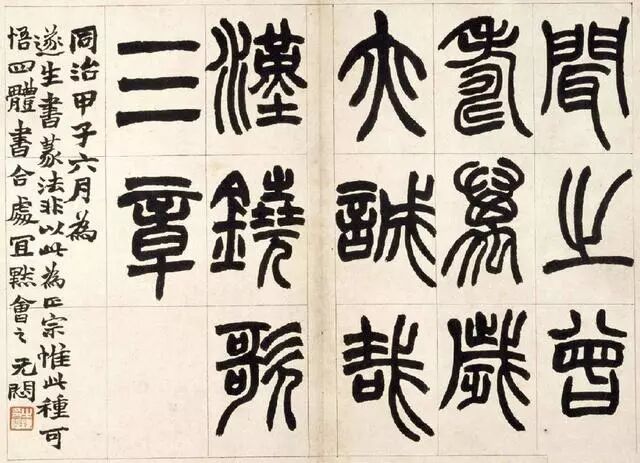 聞之曾
壽萬歲
亦誠哉
漢鐃歌
三章
同治甲子六月為
遂生書篆法非以此為正宗惟此種可
悟四體書合處宜默會之 无悶